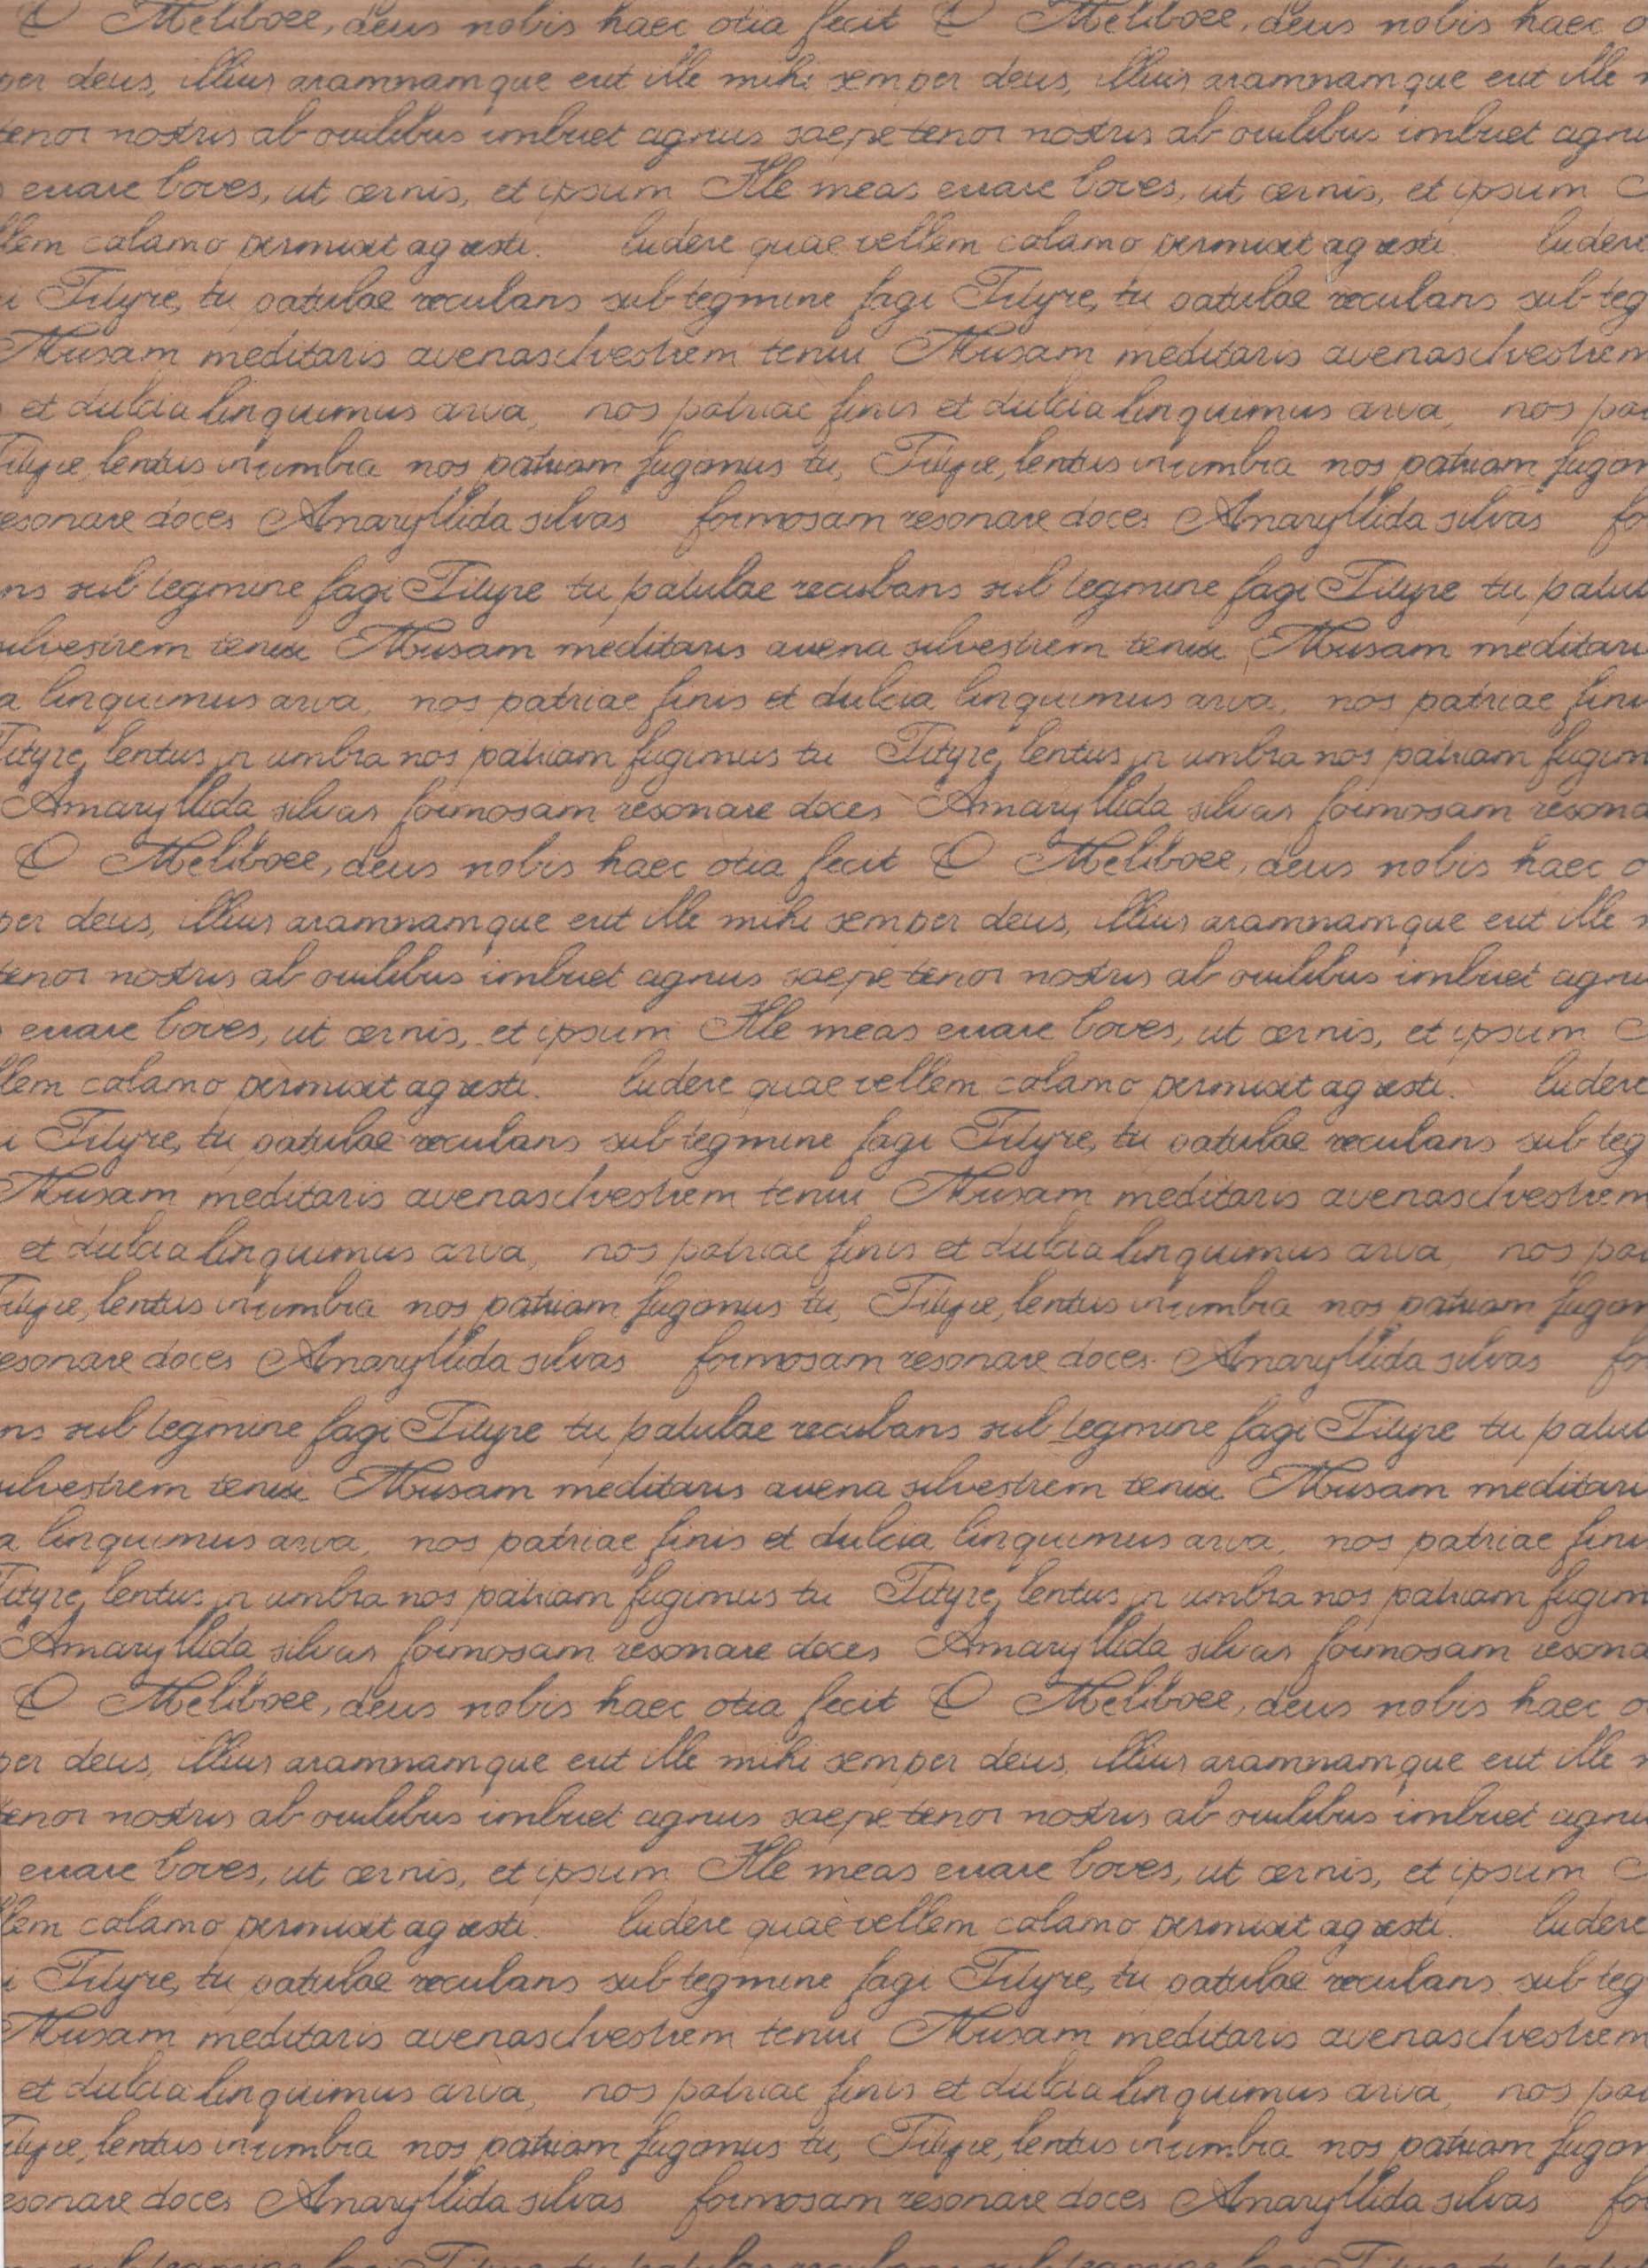 O Meliboee, deus nobis haec otia fecit O Meliboee, deus nobis haec o
per deus, illius aramnamque erit ille mihi semper deus, illius aramnamque erit ille
tenor nostris ab ovilibus imbuet agnus saepe tenor nostris ab ovilibus imbuet agnu
errare boves, ut cernis, et ipsum Ille meas errare boves, ut cernis, et ipsum
llem calamo permisit agresti. ludere quae vellem calamo permisit agresti ludere
Tityre, tu patulae recubans sub tegmine fagi Tityre, tu patulae recubans sub teg
Musam meditaris avenasilvestrem tenui Musam meditaris avenasilvestrem
et dulcia linquimus arva, nos patriae finis et dulcia linquimus arva, nos pat
Tityre, lentus in umbra nos patriam fugimus tu, Tityre, lentus in umbra nos patriam fugim
resonare doces Amaryllida silvas formosam resonare doces Amaryllida silvas fo
ns sub tegmine fagi Tityre tu patulae recubans sub tegmine fagi Tityre tu patul
silvestrem tenui Musam meditaris avena silvestrem tenui Musam meditari
a linquimus arva, nos patriae finis et dulcia linquimus arva, nos patriae fini
Tityre, lentus in umbra nos patriam fugimus tu Tityre, lentus in umbra nos patriam fugim
Amaryllida silvas formosam resonare doces Amaryllida silvas formosam resona
O Meliboee, deus nobis haec otia fecit O Meliboee, deus nobis haec o
per deus, illius aramnamque erit ille mihi semper deus, illius aramnamque erit ille
tenor nostris ab ovilibus imbuet agnus saepe tenor nostris ab ovilibus imbuet agnu
errare boves, ut cernis, et ipsum Ille meas errare boves, ut cernis, et ipsum
llem calamo permisit agresti. ludere quae vellem calamo permisit agresti. ludere
i Tityre, tu patulae recubans sub tegmine fagi Tityre, tu patulae recubans sub teg
Musam meditaris avenasilvestrem tenui Musam meditaris avenasilvestrem
et dulcia linquimus arva, nos patriae finis et dulcia linquimus arva, nos pat
Tityre, lentus in umbra nos patriam fugimus tu, Tityre, lentus in umbra nos patriam fugim
resonare doces Amaryllida silvas formosam resonare doces Amaryllida silvas fo
ns sub tegmine fagi Tityre tu patulae recubans sub tegmine fagi Tityre tu patul
silvestrem tenui Musam meditaris avena silvestrem tenui Musam meditari
a linquimus arva, nos patriae finis et dulcia linquimus arva, nos patriae fini
Tityre, lentus in umbra nos patriam fugimus tu Tityre, lentus in umbra nos patriam fugim
Amaryllida silvas formosam resonare doces Amaryllida silvas formosam resona
O Meliboee, deus nobis haec otia fecit O Meliboee, deus nobis haec o
per deus, illius aramnamque erit ille mihi semper deus, illius aramnamque erit ille
tenor nostris ab ovilibus imbuet agnus saepe tenor nostris ab ovilibus imbuet agnu
errare boves, ut cernis, et ipsum Ille meas errare boves, ut cernis, et ipsum
llem calamo permisit agresti. ludere quae vellem calamo permisit agresti. ludere
i Tityre, tu patulae recubans sub tegmine fagi Tityre, tu patulae recubans sub teg
Musam meditaris avenasilvestrem tenui Musam meditaris avenasilvestrem
et dulcia linquimus arva, nos patriae finis et dulcia linquimus arva, nos pat
Tityre, lentus in umbra nos patriam fugimus tu, Tityre, lentus in umbra nos patriam fugim
resonare doces Amaryllida silvas formosam resonare doces Amaryllida silvas fo